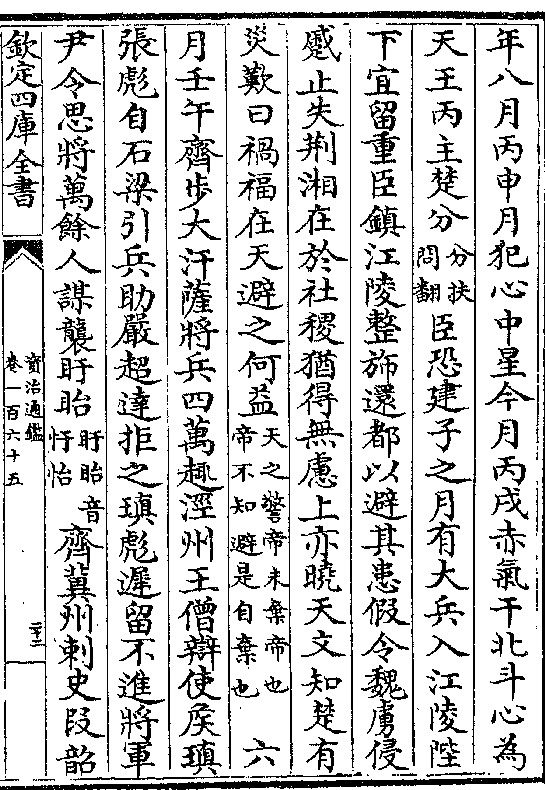 年八月丙申月犯心中星今月丙戌赤氣干北斗心為
天王丙主楚分分扶問翻臣恐建子之月有大兵入江陵陛
下宜留重臣鎮江陵整斾還都以避其患假令魏虜侵
蹙止失荆湘在於社稷猶得無慮上亦曉天文知楚有
災歎曰禍福在天避之何益天之警帝未棄帝也帝不知避是自棄也六
月壬午齊步大汗薩將兵四萬趣涇州王僧辯使侯瑱
張彪自石梁引兵助嚴超達拒之瑱彪遲留不進將軍
尹令思將萬餘人謀襲盱眙盱眙音吁怡齊冀州刺史段韶
欽定四庫全書
資治通鑑
卷一百六十五
二十三